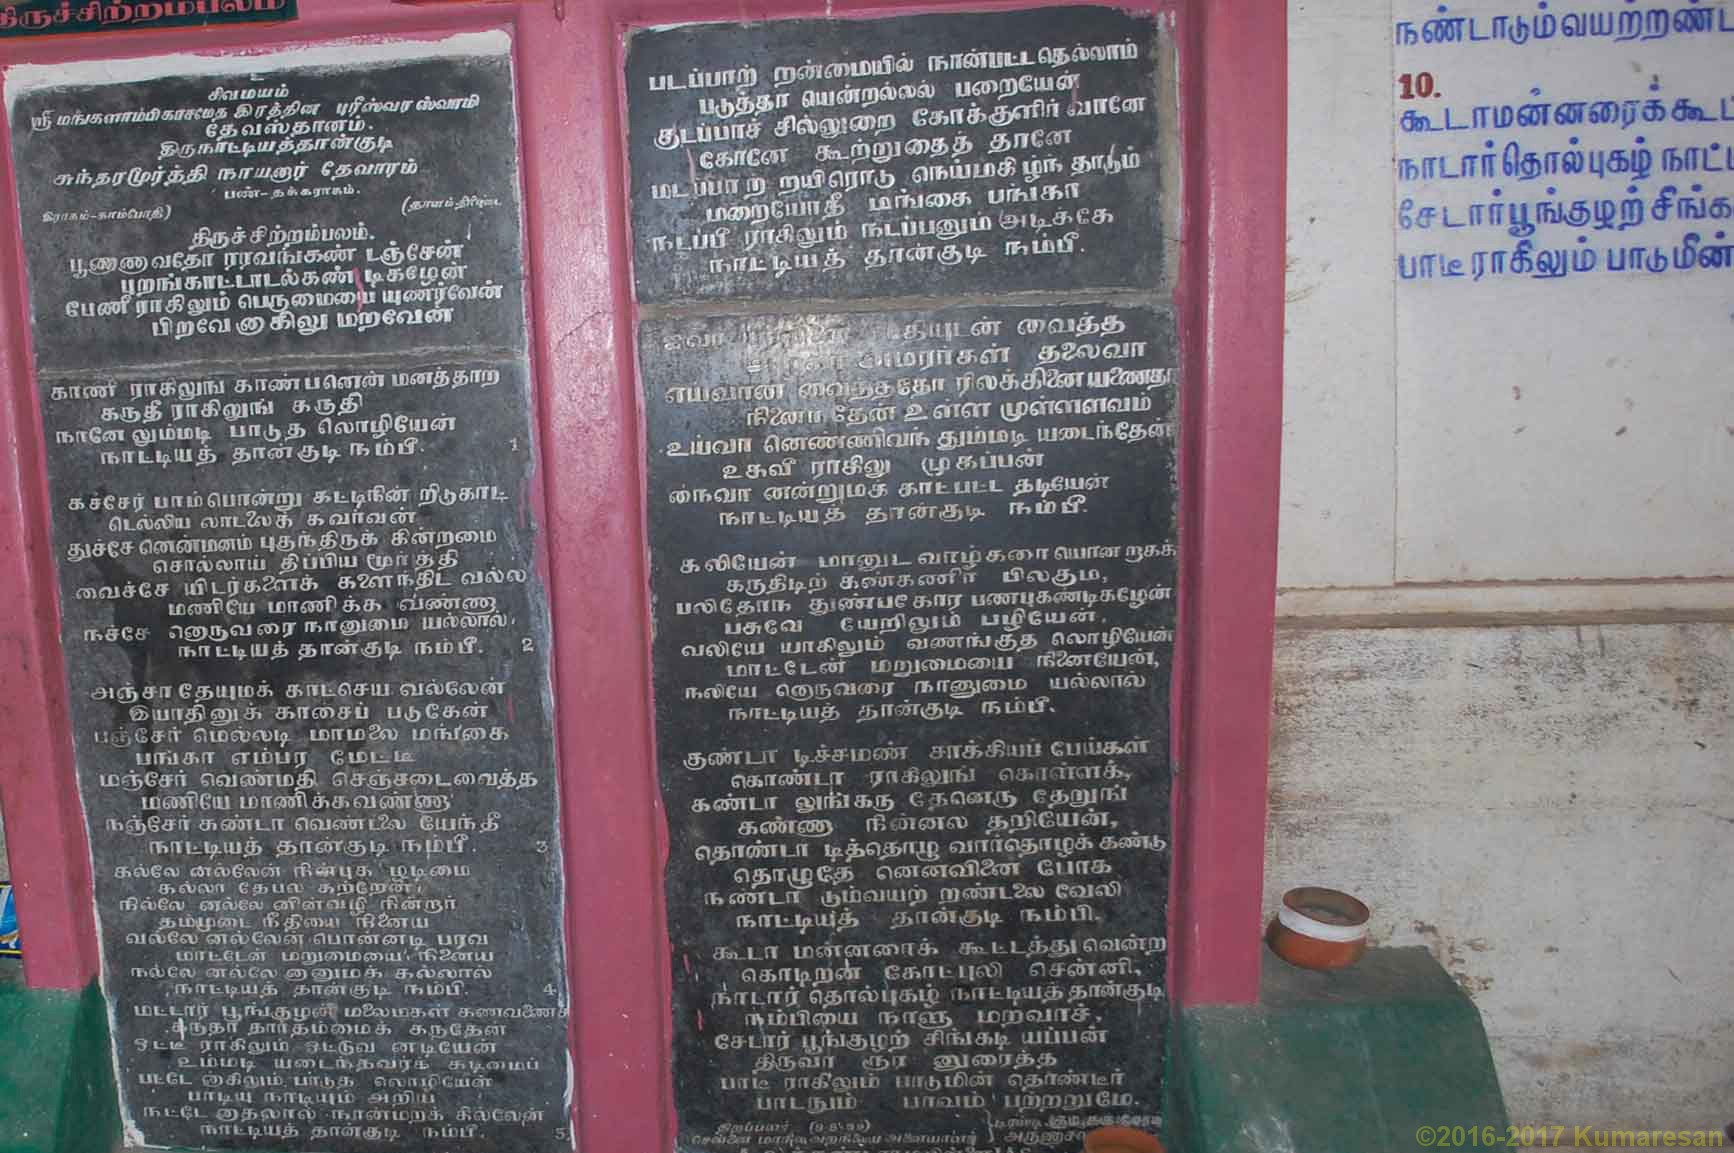 திருச்சிற்றம்பலம்
சிவமயம்
ஸ்ரீ மங்களாம்பிகாசமேத இரத்தின புரீஸ்வர ஸ்வாமி
தேவஸ்தானம்.
திருநாட்டியத்தான்குடி
சுந்தரமூர்த்தி நாயனார் தேவாரம்
பண்-தக்கராகம்.
(இராகம்-காம்போதி)
திருச்சிற்றம்பலம்.
பூணாணாவதோ ரரவங்கண் டஞ்சேன்
புறங்காட்டாடல்கண் டிகழேன்
பேணீ ராகிலும் பெருமையை யுணர்வேன்
பிறவே னாகிலு மறவேன்
காணீ ராகிலுங் காண்பனென் மனத்தாற
கருதீ ராகிலுங் கருதி
நானே லும்மடி பாடுத லொழியேன்
நாட்டியத் தான்குடி நம்பீ. 1
கச்சேர் பாம்பொன்று கட்டிநின் றிடுகாட்
டெல்லிய லாடலைக் கவர்வன்
துச்சே னென்மனம் புதந்திருக் கின்றமை
சொல்லாய் திப்பிய மூர்த்தி
வைச்சே யிடர்களைக் களைந்திட வல்ல
மணியே மாணிக்க வண்ணா
நச்சே னொருவரை நானுமை யல்லால்
நாட்டியத் தான்குடி நம்பீ. 2
அஞ்சா தேயுமக் காட்செய வல்லேன்
இயாதினுக் காசைப் படுகேன்
பஞ்சேர் மெல்லடி மாமலை மங்கை
பங்கா எம்பர மேட்டீ
மஞ்சேர் வெண்மதி செஞ்சடைவைத்த
மணியே மாணிக்கவண்ணா
நஞ்சேர் கண்டா வெண்டலை யேந்தீ
நாட்டியத் தான்குடி நம்பீ. 3
கல்லே னல்லேன் நின்புக ழடிமை
கல்லா தேபல கற்றேன்
நில்லே னல்லே னின்வழி நின்றார்
தம்முடை நீதியை நினைய
வல்லே னல்லேன் பொன்னடி பரவ
மாட்டேன் மறுமையை நினைய
நல்லே னல்லே னானுமக் கல்லால்
நாட்டியத் தான்குடி நம்பீ. 4
மட்டார் பூங்குழன் மலைமகள் கணவனைக்
கருதா தார்தம்மைக் கருதேன்
ஒட்டீ ராகிலும் ஒட்டுவ னடியேன்
உம்மடி யடைந்தவர்க் கடிமைப்
பட்டே னாகிலும் பாடுத லொழியேன்
பாடியு நாடியும் அறிய
நட்டே னாதலால் நான்மறக் கில்லேன்
நாட்டியத் தான்குடி நம்பீ. 5
படப்பாற் றன்மையில் நான்பட்டதெல்லாம்
படுத்தா யென்றல்லல் பறையேன்
குடப்பாச் சில்லுறை கோக்குளிர் வானே
கோனே கூற்றுதைத் தானே
மடப்பாற் றயிரொடு நெய்மகிழ்ந் தாடும்
மறையோதீ மங்கை பங்கா
நடப்பீ ராகிலும் நடப்பனும் அடிக்கே
நாட்டியத் தான்குடி நம்பீ.
வைத்த
அமரர்கள் தலைவா
எய்வான் வைத்ததோ ரிலக்கினையணைதர
நினைந் தேன் உள்ள முள்ளளவும்
உய்வா னெண்ணிவந் தும்மடி யடைந்தேன்
உகவீ ராகிலு முகப்பன்
நைவா னன்றுமக் காட்பட்ட தடியேன்
நாட்டியத் தான்குடி நம்பீ.
கலியேன் மானுட வாழ்க்கை யொன றாகக்
கருதிடிற் கண்கணீர் பில்கும்,
பலிதேர்ந் துண்பதோர் பண்புகண்டிகழேன்
பசுவே யேறிலும் பழியேன்,
வலியே யாகிலும் வணங்குத லொழியேன்
மாட்டேன் மறுமையை நினையேன்,
நலியே னொருவரை நானுமை யல்லால்
நாட்டியத் தான்குடி நம்பீ.
குண்டா டிச்சமண் சாக்கியப் பேய்கள்
கொண்டா ராகிலுங் கொள்ளக்,
கண்டா லுங்கரு தேனெரு தேறுங்
கண்ணா நின்னல தறியேன்,
தொண்டா டித்தொழு வார்தொழக் கண்டு
தொழுதே னென்வினை போக
நண்டா டும்வயற் றண்டலை வேலி
நாட்டியத் தான்குடி நம்பி.
கூடா மன்னரைக் கூட்டத்து வென்ற
கொடிறன் கோட்புலி சென்னி,
நாடார் தொல்புகழ் நாட்டியத்தான்குடி
நம்பியை நாளு மறவாச்,
சேடார் பூங்குழற் சிங்கடி யப்பன்
திருவா ரூர னுரைத்த
பாடீ ராகிலும் பாடுமின் தொண்டீர்
பாடநும் பாவம் பற்றறுமே.
நண்டாடும்வயற்றண்ட
10.
கூடாமன்னரைக்கூட
நாடார்தொல்புகழ் நாட்டி
சேடார்பூங்குழற் சிங்க
பாடீராகிலும் பாடுமின்
©2016-2017 Kumaresan